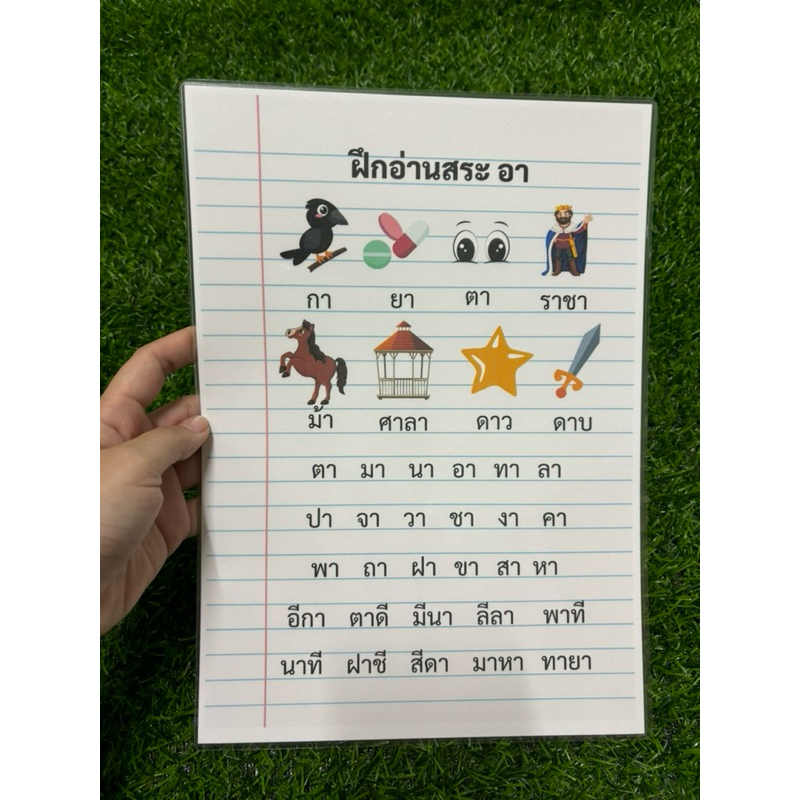 ฝึกอ่านสระ อา
กา ยา ตา ราชา
ม้า ศาลา ดาว ดาบ
ตา มา นา อา ทา ลา
ปา จา วา ชา งา คา
พา ถา ฝา ขา สา หา
อีกา ตาดี มีนา ลีลา พาที
นาที ฝาชี สีดา มาหา ทายา